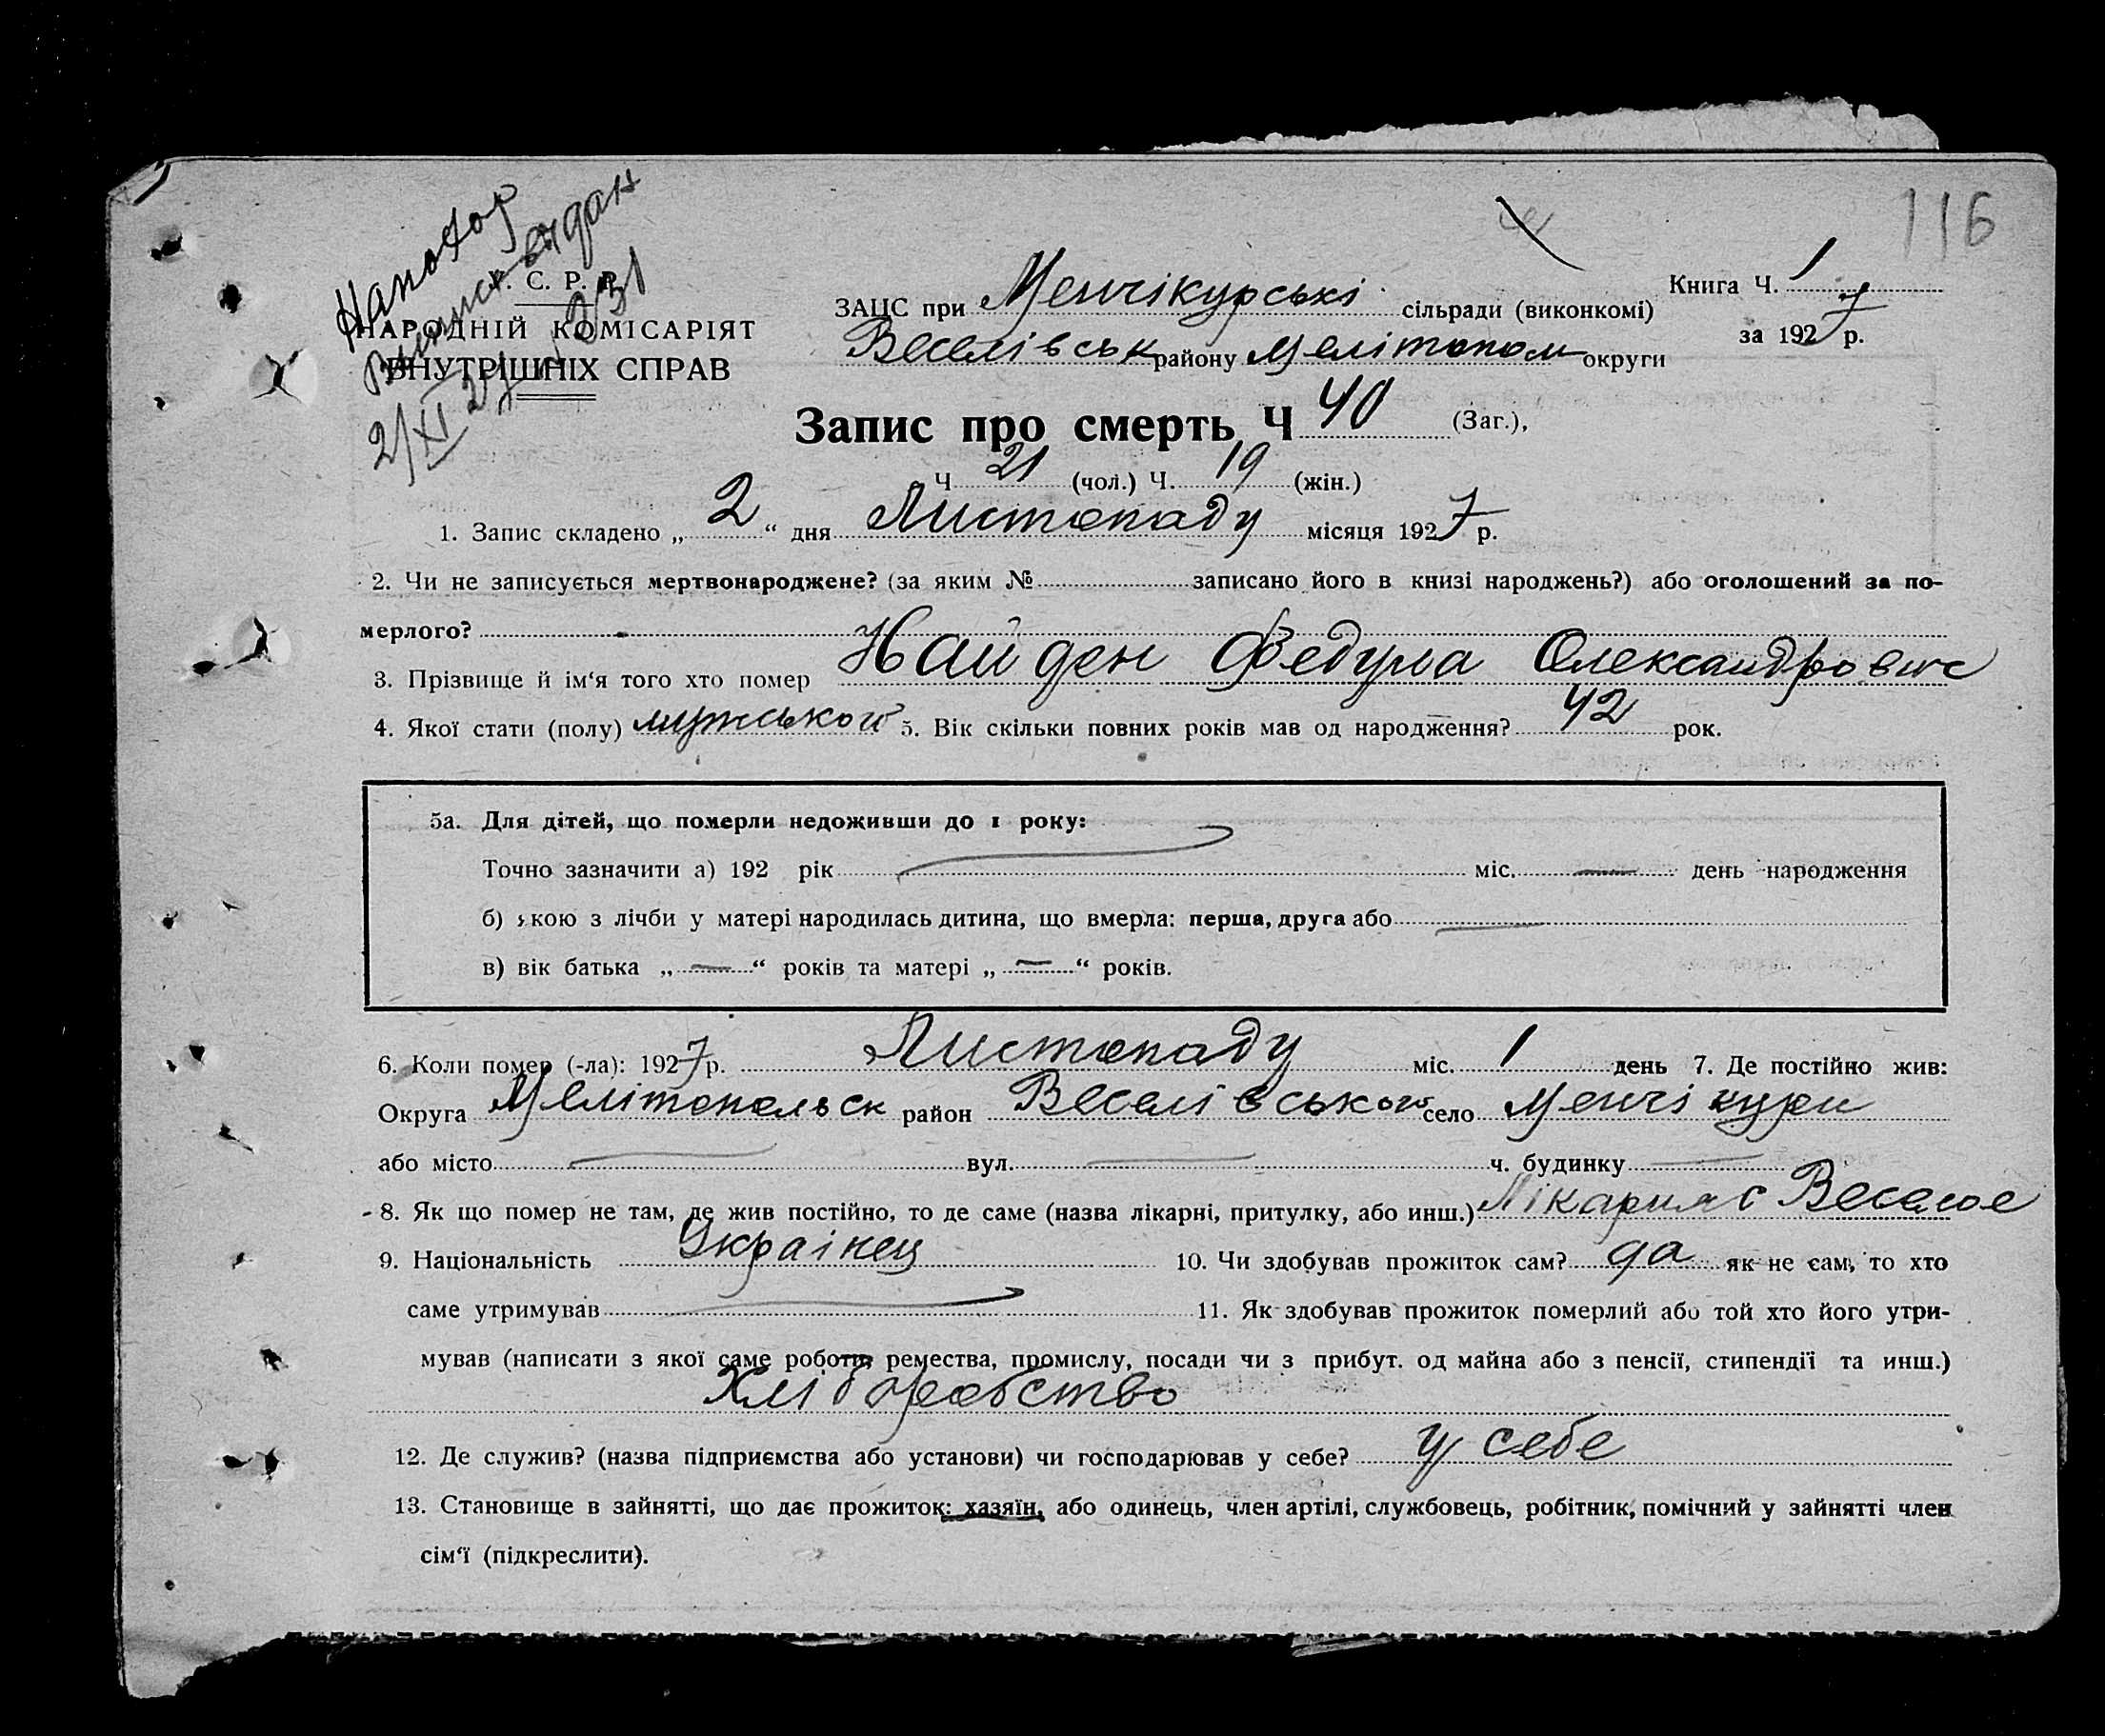 116
Напохор
Выписк выдан
2/XI 27 № 231
У. С. Р. Р.
НАРОДНІЙ КОМІСАРІЯТ
ВНУТРІШНІХ СПРАВ
Книга Ч. 1
за 1927 р.
ЗАЦС при Менчікурські сільради (виконкомі)
Веселівськ району Мелітопол округи
Запис про смерть Ч 40 (Заг.),
Ч 21 (чол.) Ч. 19 (жін.)
1. Запис складено „ 2 “ дня Листопаду місяця 1927 р.
2. Чи не записується мертвонароджене? (за яким № записано його в книзі народжень?) або оголошений за по-
мерлого?
3. Прізвище й ім‘я того хто помер Найден Федула Олександрович
4. Якої стати (полу) мужського 5. Вік скільки повних років мав од народження? 42 рок.
5а. Для дітей, що померли недоживши до 1 року:
Точно зазначити а) 192 рік міс. — день народження
б) якою з лічби у матері народилась дитина, що вмерла: перша, друга або —
в) вік батька „ — “ років та матері „ — “ років.
6. Коли помер (-ла): 1927 р. Листопаду міс. 1 день 7. Де постійно жив:
Округа Мелітопольськ район Веселівського село Менчікури
або місто — вул. — ч. будинку —
8. Як що помер не там, де жив постійно, то де саме (назва лікарні, притулку, або инш.) Лікарня с Веселое
9. Національність Українец 10. Чи здобував прожиток сам? да як не сам, то хто
саме утримував — 11. Як здобував прожиток померлий або той хто його утри-
мував (написати з якої саме роботи, ремества, промислу, посади чи з прибут. од майна або з пенсії, стипендії та инш.)
Хліборобство
12. Де служив? (назва підприємства або установи) чи господарював у себе? у себе
13. Становище в зайнятті, що дає прожиток: хазяїн, або одинець, член артілі, службовець, робітник, помічний у зайнятті член
сім‘ї (підкреслити).